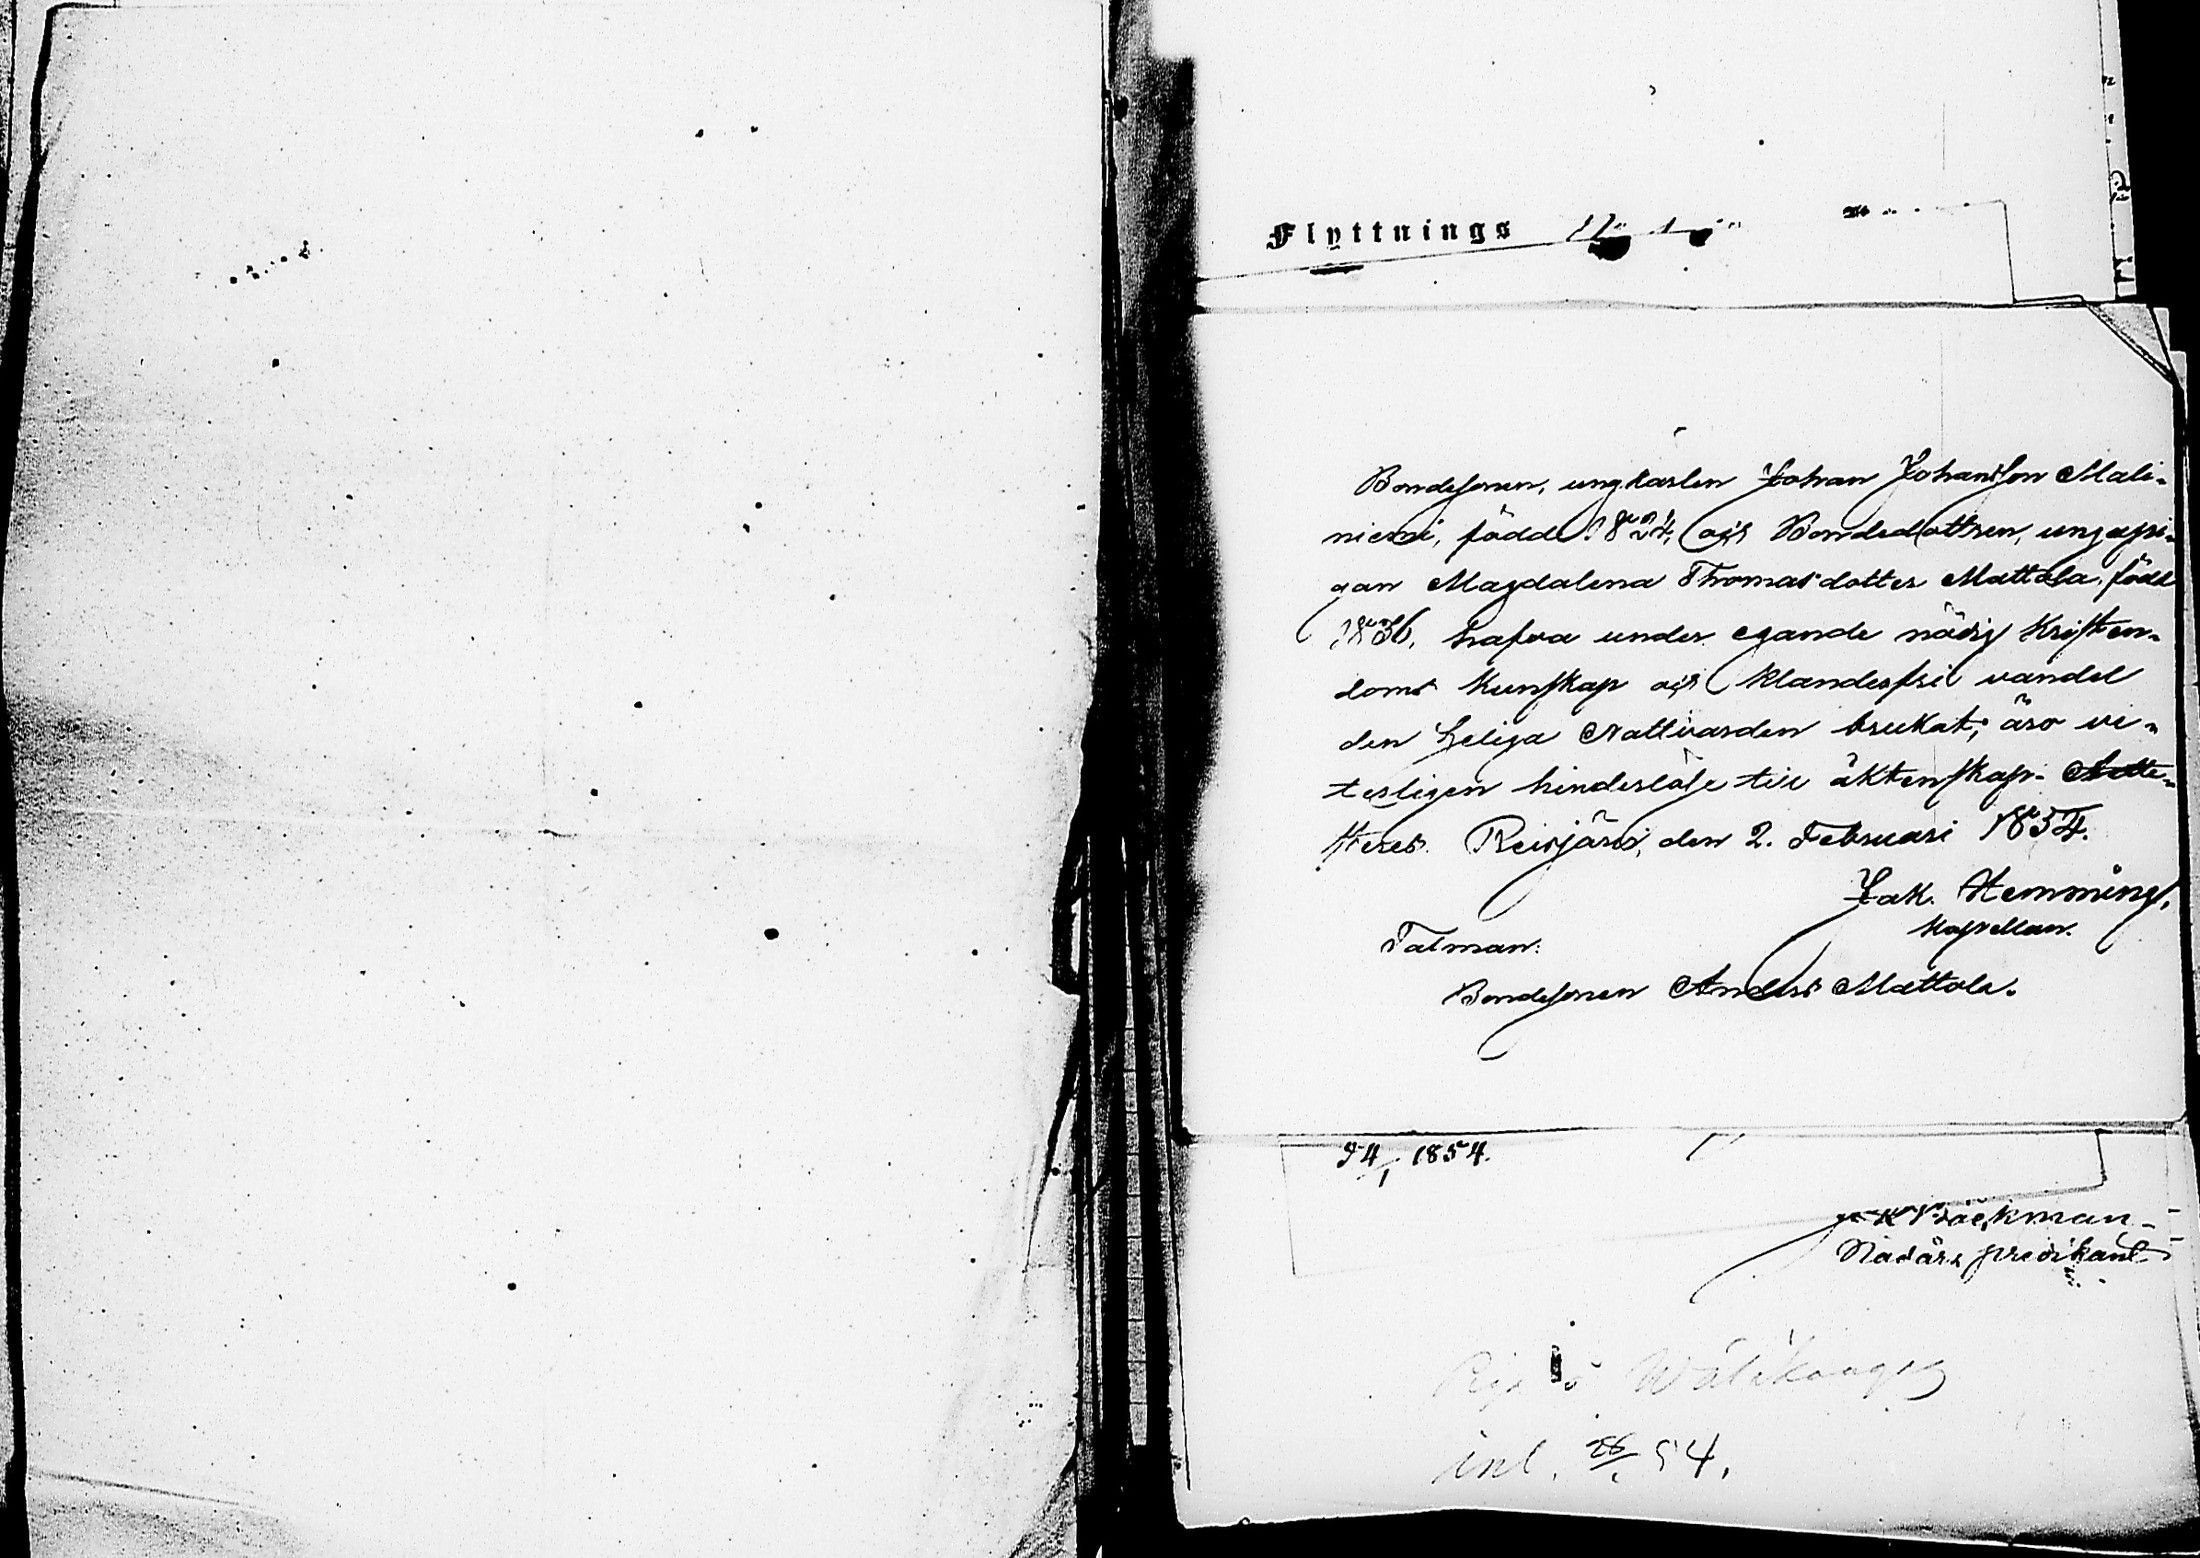 Flyttnings
Bondesonen, ungkarlen Johan Johansson Mali-
niemi, född 1824, och Bondedottren, ungapi-
gan Magdalena Thomasdotter Mattola, född
1836, hafva under egande nödig Kristen-
doms kunskap och klanderfri vandel
den heliga Nattvarden brukat; äro vi-
terligen hinderlöse till äktenskap. Atte-
steres. Reisjärvi, den 2. Februari 1854.
Jak. Hemming,
Kapellan.
Talman:
Bondesonen Anders Mattola.
24/1 1854.
Bäckman
Nådårs predikant
inl. 26/ 54.